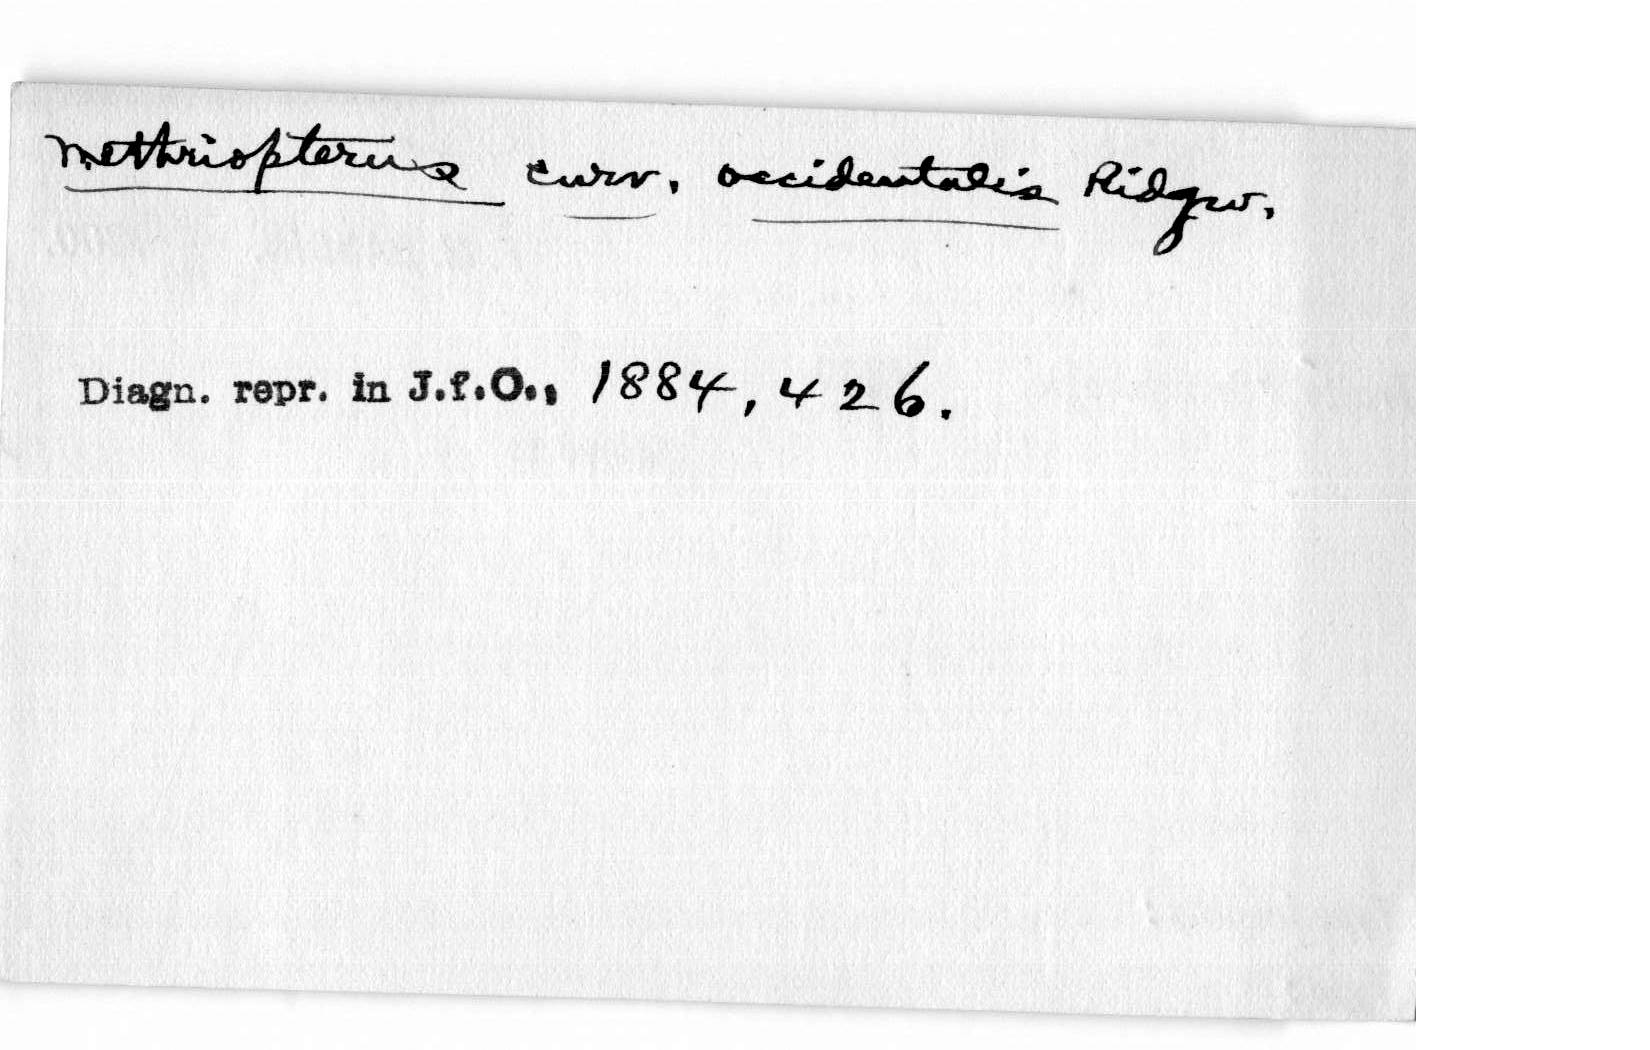 Methriopterus curv. occidentalis Ridgw.
Diagn. repr. in J.f.O., 1884, 426.